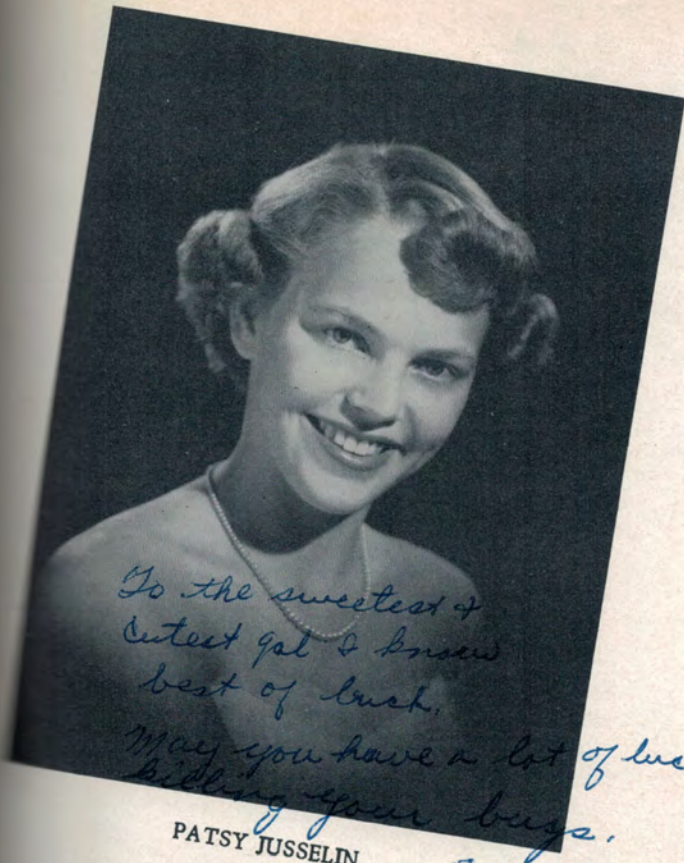 To the sweetest &
cutest gal I know
best of luck.
May you have a lot of luc
killing your bugs.
PATSY JUSSELIN